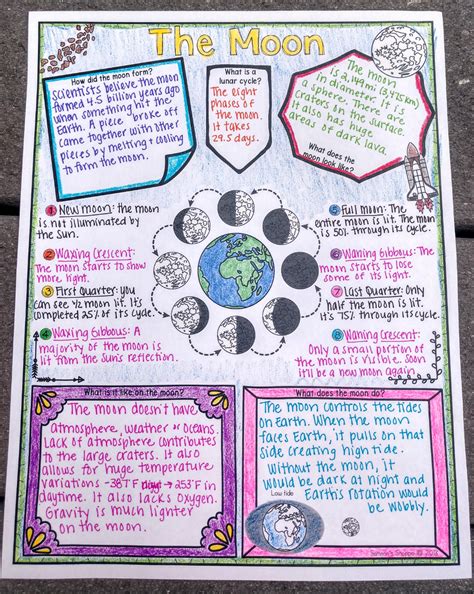 The Moon
How did the moon form?
Scientists believe the moon
formed 4.5 billion years ago
when something hit the
Earth. A piece broke off
came together with other
pieces by melting + cooling
to form the moon.
What is a
lunar cycle?
The eight
phases of
the moon.
It takes
29.5 days.
The moon
is 2,1 mi (3,475 km)
in diameter. It is
a sphere. There are
craters in the surface.
It also has huge
areas of dark lava.
What does the
moon look like?
1 New moon: the moon
is not illuminated by
the Sun.
2 Waxing Crescent:
The moon starts to show
more light.
3 First Quarter: you
can see ½ moon lit. It's
completed 25% of its cycle.
4 Waxing Gibbous: A
majority of the moon is
lit from the sun's reflection.
5 Full moon: The
entire moon is lit. The moon
is 50% through its cycle.
6 Waning Gibbous: The
moon starts to lose
some of its light.
7 Last Quarter: Only
half the moon is lit.
It's 75% through its cycle.
8 Waning Crescent:
Only a small portion of
the moon is visible. Soon
it'll be a new moon again
What is it like on the moon?
The moon doesn't have
atmosphere, weather or oceans.
Lack of atmosphere contributes
to the large craters. It also
allows for huge temperature
variations -387°F → 253°F in
daytime. It also lacks oxygen.
Gravity is much lighter
on the moon.
What does the moon do?
The moon controls the tides
on Earth. When the moon
faces Earth, it pulls on that
side creating high tide.
Without the moon, it
would be dark at night and
Earth's rotation would
be wobbly.
Low tide